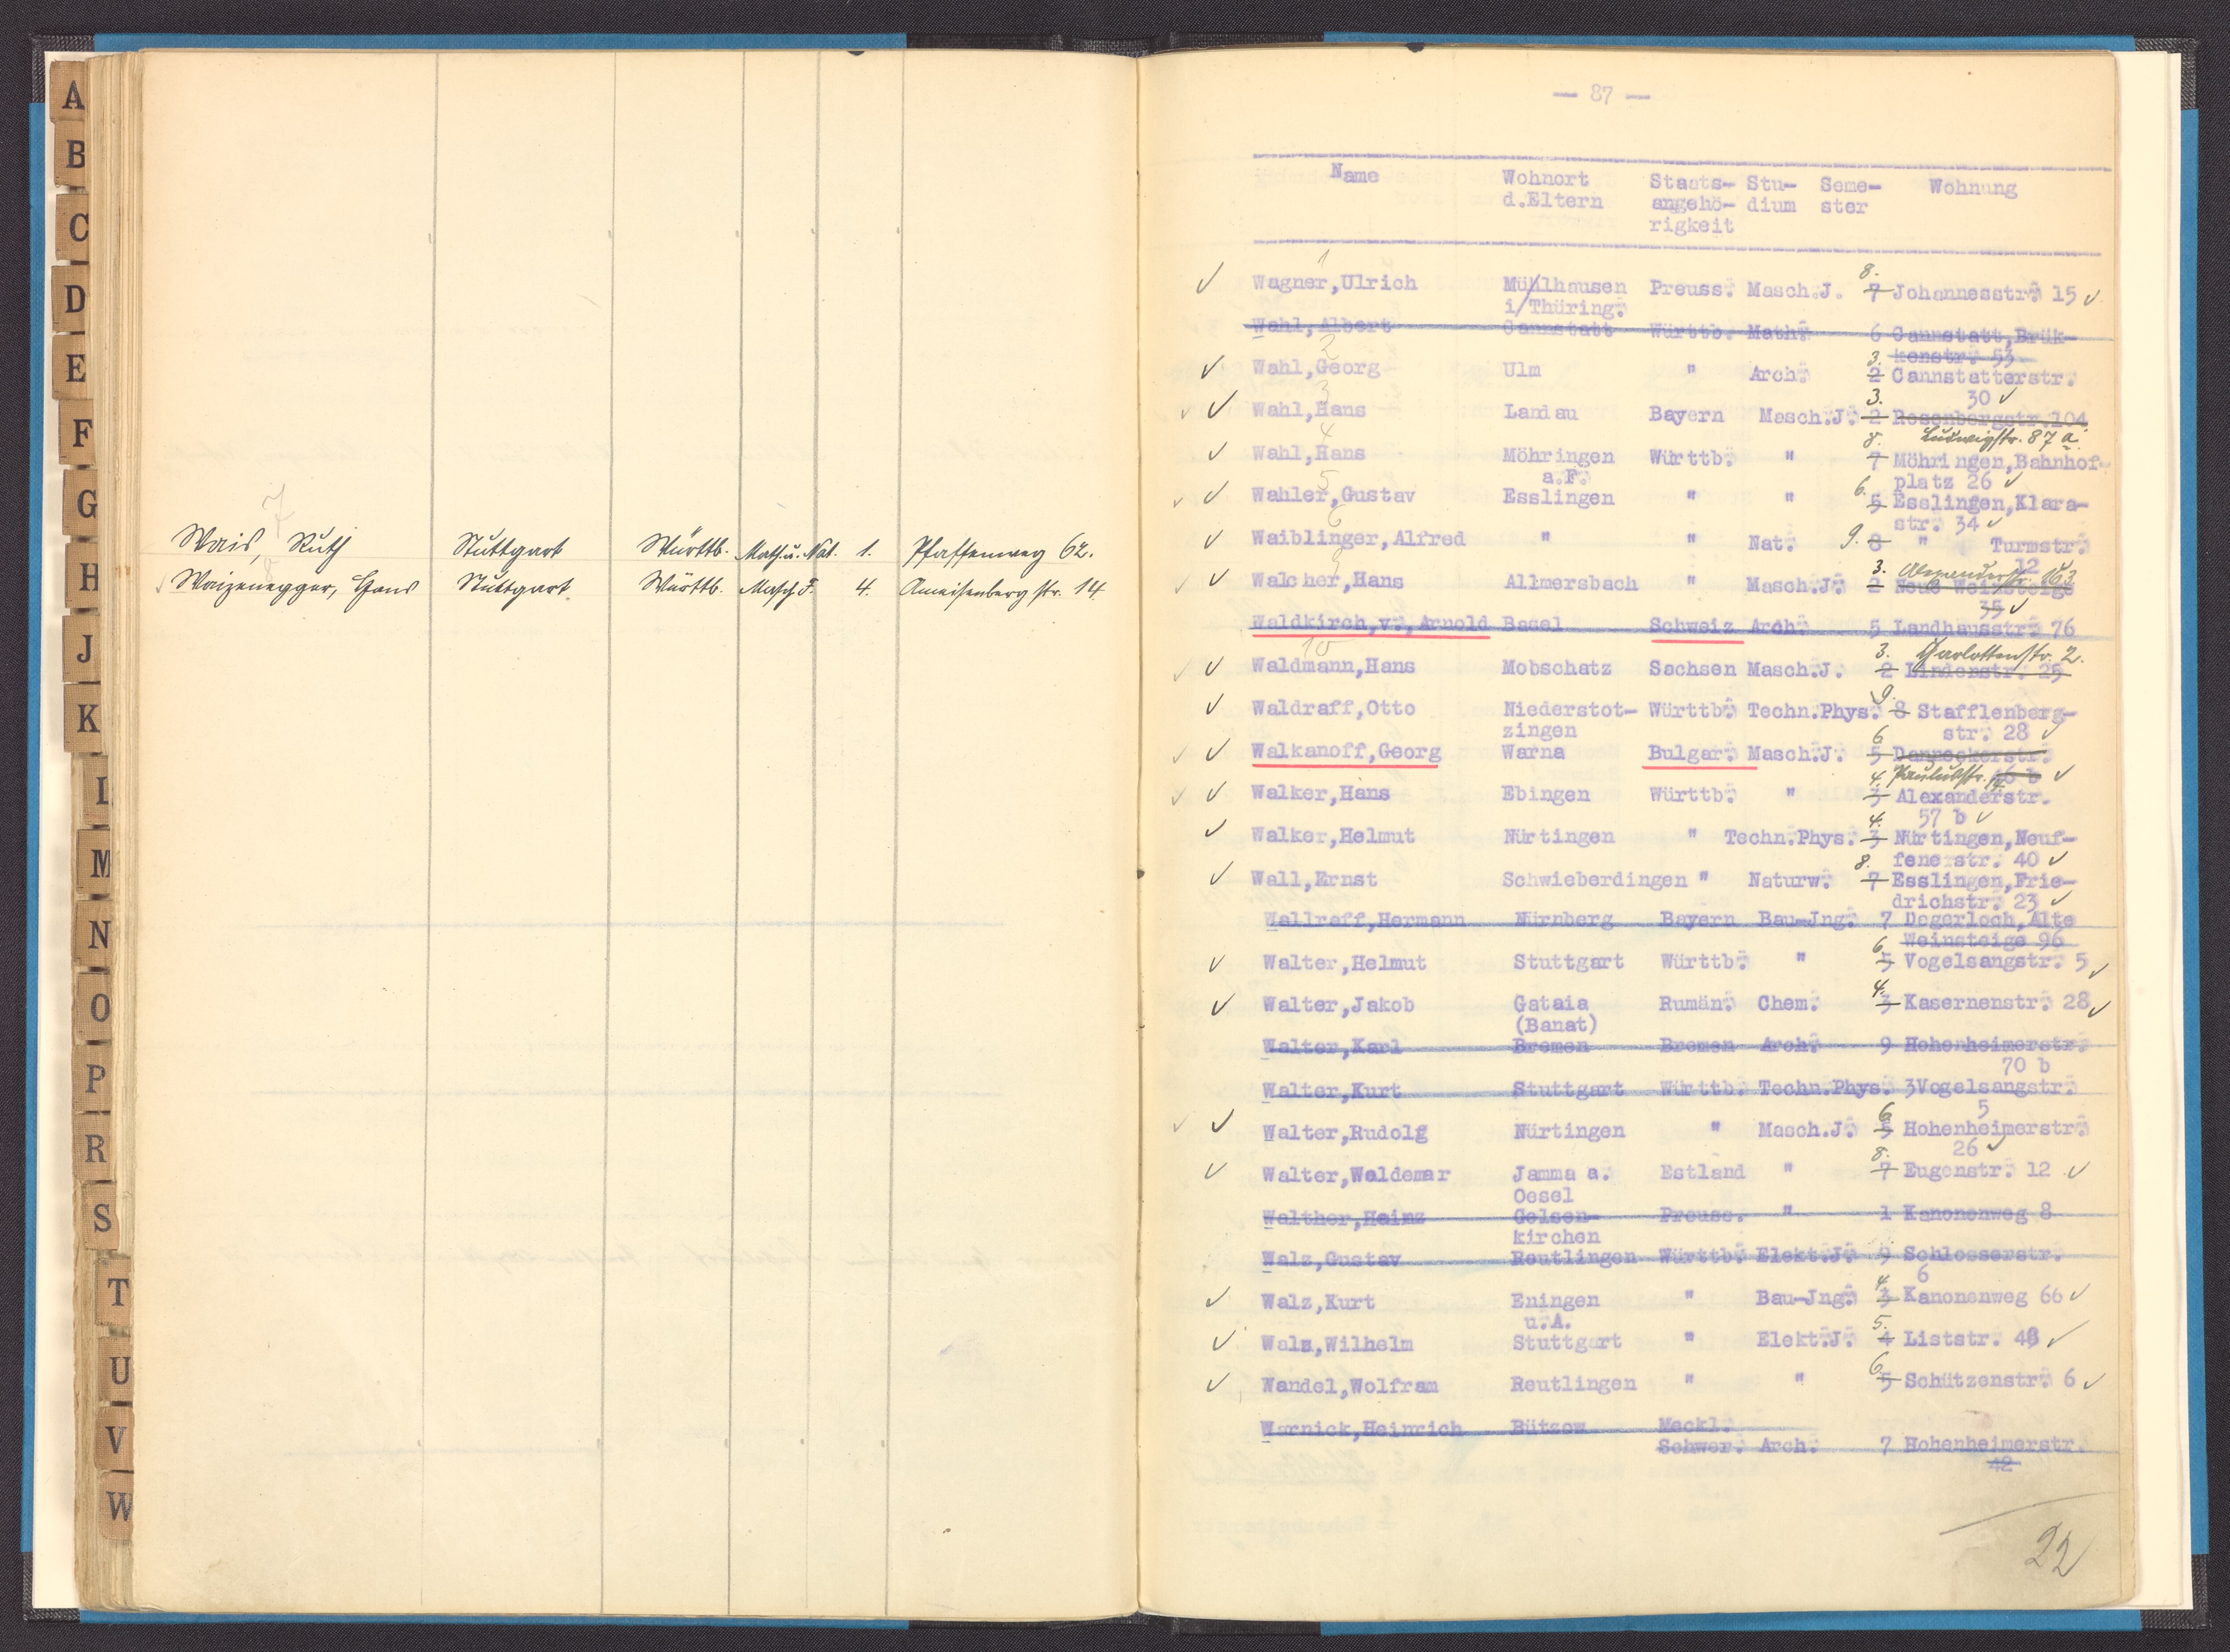 A
B
C
D
E
F
G
H
J
K
L
M
N
O
P
R
S
T
U
V
W
7
Wais, Ruth Stuttgart Württb. Math.u.Nat. 1. Pfaffenweg 62.
Waizenegger, Hans Stuttgart Württb. Masch.J. 4. Ameisenbergstr. 14.
— 87 —
Name Wohnort Staats- Stu- Seme- Wohnung
d.Eltern angehö- dium ster
rigkeit
1 8.
Wagner,Ulrich Mühlhausen Preuss. Masch.J. 7 Johannesstr. 15
i/Thüring.
Wahl,Albert Cannstatt Württb. Math. 6 Cannstatt,Brük-
2 kenstr. 53
3.
Wahl,Georg Ulm " Arch. 2 Cannstatterstr.
3 3. 30
Wahl,Hans Landau Bayern Masch.J. 2 Rosenbergstr.104
4 8. Ludwigstr. 87 a.
Wahl,Hans Möhringen Württb. " 7 Möhringen,Bahnhof-
5 a.F. platz 26
6.
Wahler,Gustav Esslingen " " 5 Esslingen,Klara-
6 str. 34
Waiblinger,Alfred " " Nat. 9. 8 " Turmstr.
9 12
3. Alexanderstr. 163
Walcher,Hans Allmersbach " Masch.J. 2 Neue Weinsteige
35
Waldkirch,v.,Arnold Basel Schweiz Arch. 5 Landhausstr. 76
10 3. Charlottenstr. 2.
Waldmann,Hans Mobschatz Sachsen Masch.J. 2 Lindenstr. 25
9.
Waldraff,Otto Niederstot- Württb. Techn.Phys. 8 Stafflenberg-
zingen str. 28
6
Walkanoff,Georg Warna Bulgar. Masch.J. 5 Danneckerstr.
4 Paulusstr.
Walker,Hans Ebingen Württb. " 3 Alexanderstr.
4. 57 b
Walker,Helmut Nürtingen " Techn.Phys. 3 Nürtingen,Neuf-
fenerstr. 40
8.
Wall,Ernst Schwieberdingen " Naturw. 7 Esslingen,Frie-
drichstr. 23
Wallraff,Hermann Nürnberg Bayern Bau-Jng. 7 Degerloch,Alte
Weinsteige 96
6
Walter,Helmut Stuttgart Württb. " 5 Vogelsangstr. 5
4.
Walter,Jakob Gataia Rumän. Chem. 3 Kasernenstr. 28
(Banat)
Walter,Karl Bremen Bremen Arch. 9 Hohenheimerstr.
70 b
Walter,Kurt Stuttgart Württb. Techn.Phys. 3Vogelsangstr.
5
6
Walter,Rudolf Nürtingen " Masch.J. 5 Hohenheimerstr.
26
8.
Walter,Waldemar Jamma a. Estland " 7 Eugenstr. 12
Oesel
Walther,Heinz Gelsen- Preuss. " 1 Kanonenweg 8
kirchen
Walz,Gustav Reutlingen Württb. Elekt.J. 9 Schlosserstr.
6
4.
Walz,Kurt Eningen " Bau-Jng. 3 Kanonenweg 66
u.A.
5.
Walz,Wilhelm Stuttgart " Elekt.J. 4 Liststr. 48
6
Wandel,Wolfram Reutlingen " " 5 Schützenstr. 6
Warnick,Heinrich Bützow Meckl.
Schwer. Arch. 7 Hohenheimerstr.
42
22